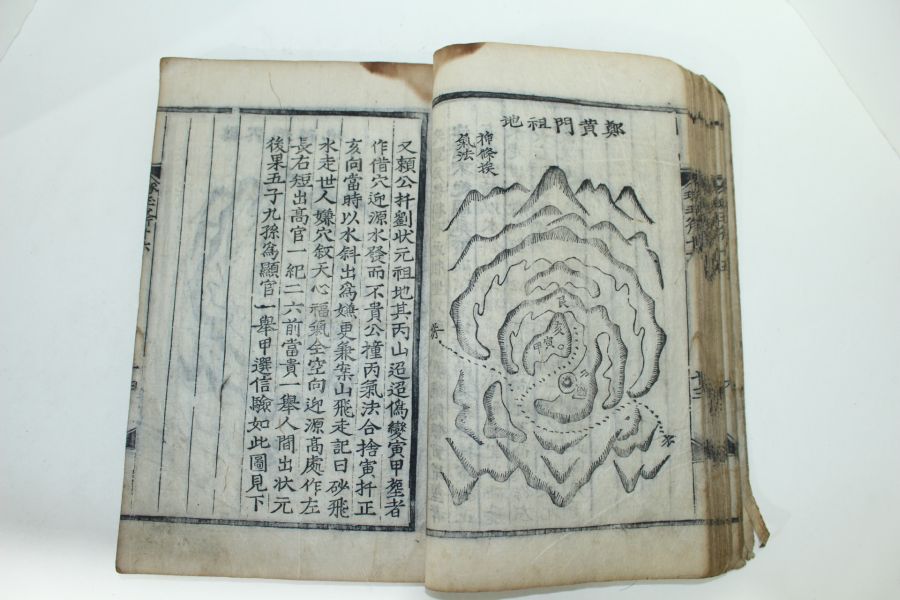 鄭黃門祖地
神條挨
氣法
艮
亥
寅
甲
又賴公扦劉狀元祖地其丙山迢迢偽變寅甲壟者
作借穴迎源水發而不貴公撞丙氣法合捨寅扦正
亥向當時以水斜出爲嫌更兼案山飛走記曰砂飛
水走世人嫌穴敘天心福氣全空向迎源高處作左
長右短出高官一紀二六前當貴一舉人間出狀元
後果五子九孫爲顯官一舉甲選信驗如此圖見下